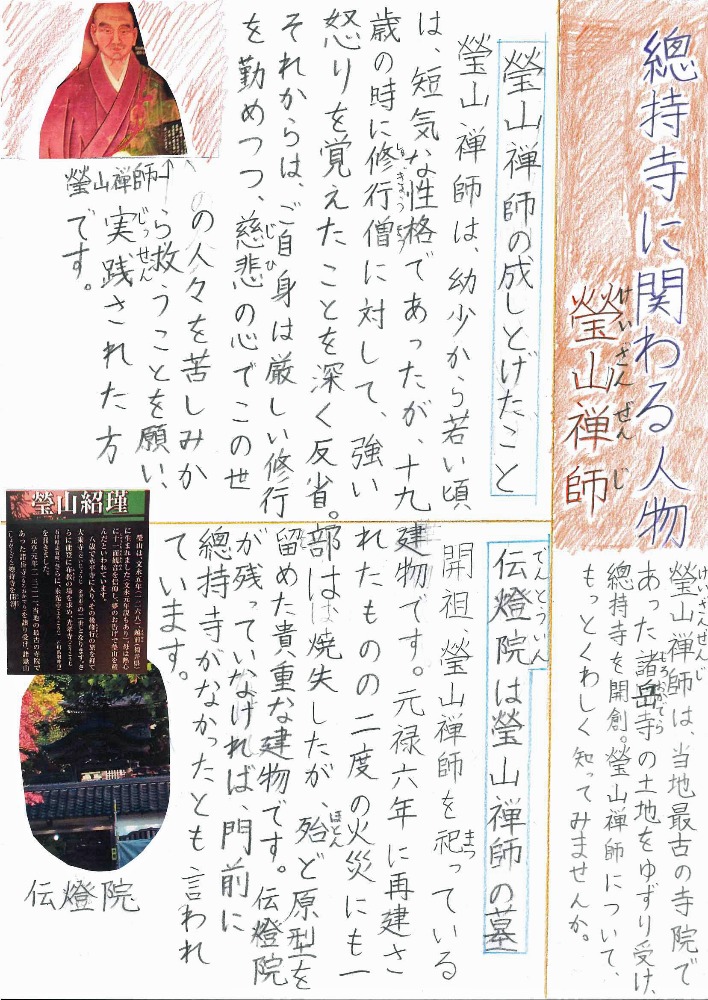 總持寺に関わる人物
けいざんぜんじ
瑩山禅師
けいざんぜんじ
瑩山禅師は、当地最古の寺院で
もろおかでら
あった諸岳寺の土地をゆずり受け、
總持寺を開創。瑩山禅師について、
もっとくわしく知ってみませんか。
瑩山禅師の成しとげたこと
瑩山禅師は、幼少から若い頃
は、短気な性格であったが、十九
歳の時に修行僧に対して、強い
怒りを覚えたことを深く反省。
それからは、ご自身は厳しい修行
じひ
を勤めつつ、慈悲の心でこの世
の人々を苦しみか
ら救うことを願い、
じっせん
実践された方
です。
瑩山禅師
でんとういん
伝燈院は瑩山禅師の墓
まつ
開祖、瑩山禅師を祀っている
建物です。元禄六年に再建さ
れたものの二度の火災にも一
ほとん
部は焼失したが、殆ど原型を
留めた貴重な建物です。伝燈院
が残ってなければ、門前に
總持寺がなかったとも言われ
ています。
瑩山紹瑾
伝燈院